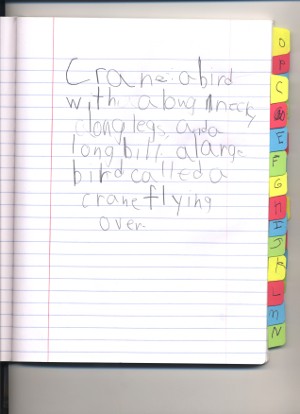 Crane: a bird
with a neck,
long legs, and a
long bill, a large
bird called a
crane flying
over.
C
E
F
G
H
L
M
N